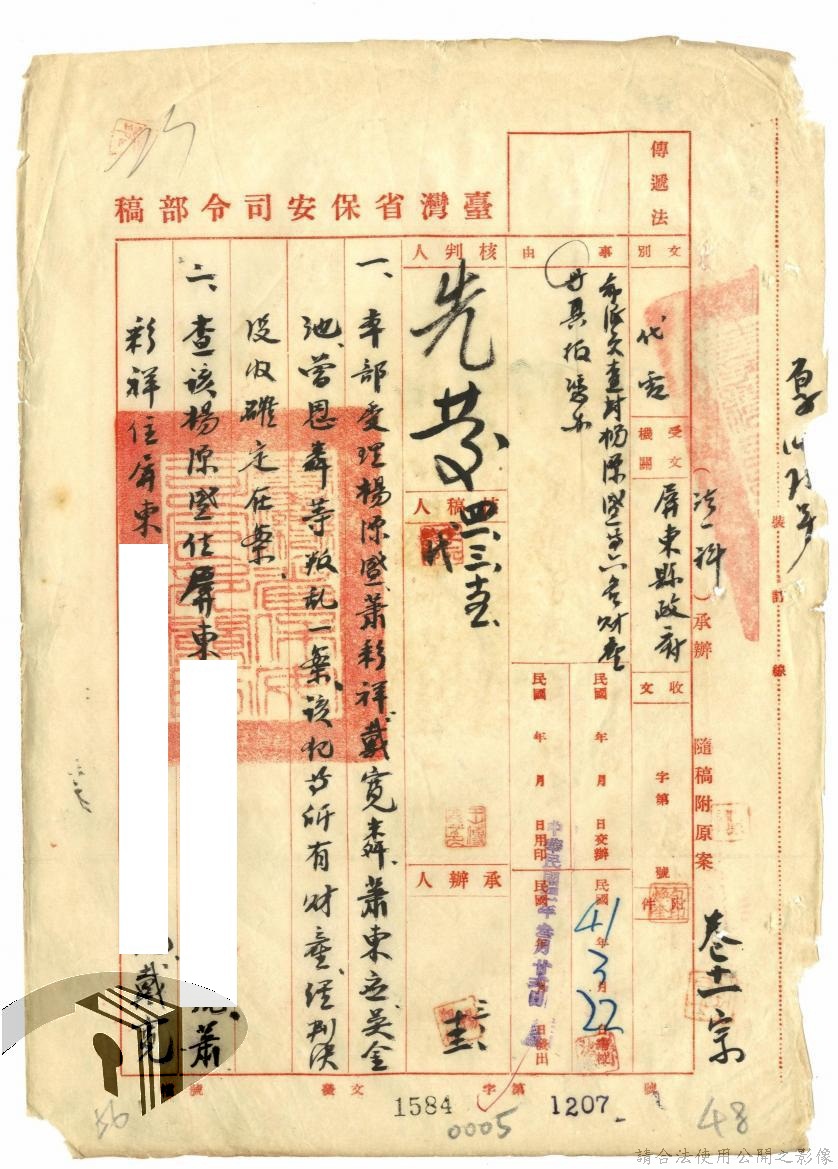 臺灣省保安司令部稿
傳遞法
文別
代電
受文機關
屏東縣政府
事由
希依文查封楊深盛等六名財產
并具报憑办
核判人
先發
核稿人
代
承辦人
( 法一科 ) 承辦
隨稿附原案
卷十一宗
收文 字第 號
附件
民國 年 月 日交辦
民國 年 月 日用印
民國41年3月22日
民國 年 月 日發出
裝訂線
一、本部受理楊深盛、蕭彩祥、戴寬森、蕭東立、吳金
池、曾恩森等叛乱一案、該犯等所有財產、經判決
沒收確定在案、
二、查該楊深盛住屏東
蕭
彩祥住屏東
戴寬
發文 字第 號
1584
1207
0005
48
56
請合法使用公開之影像